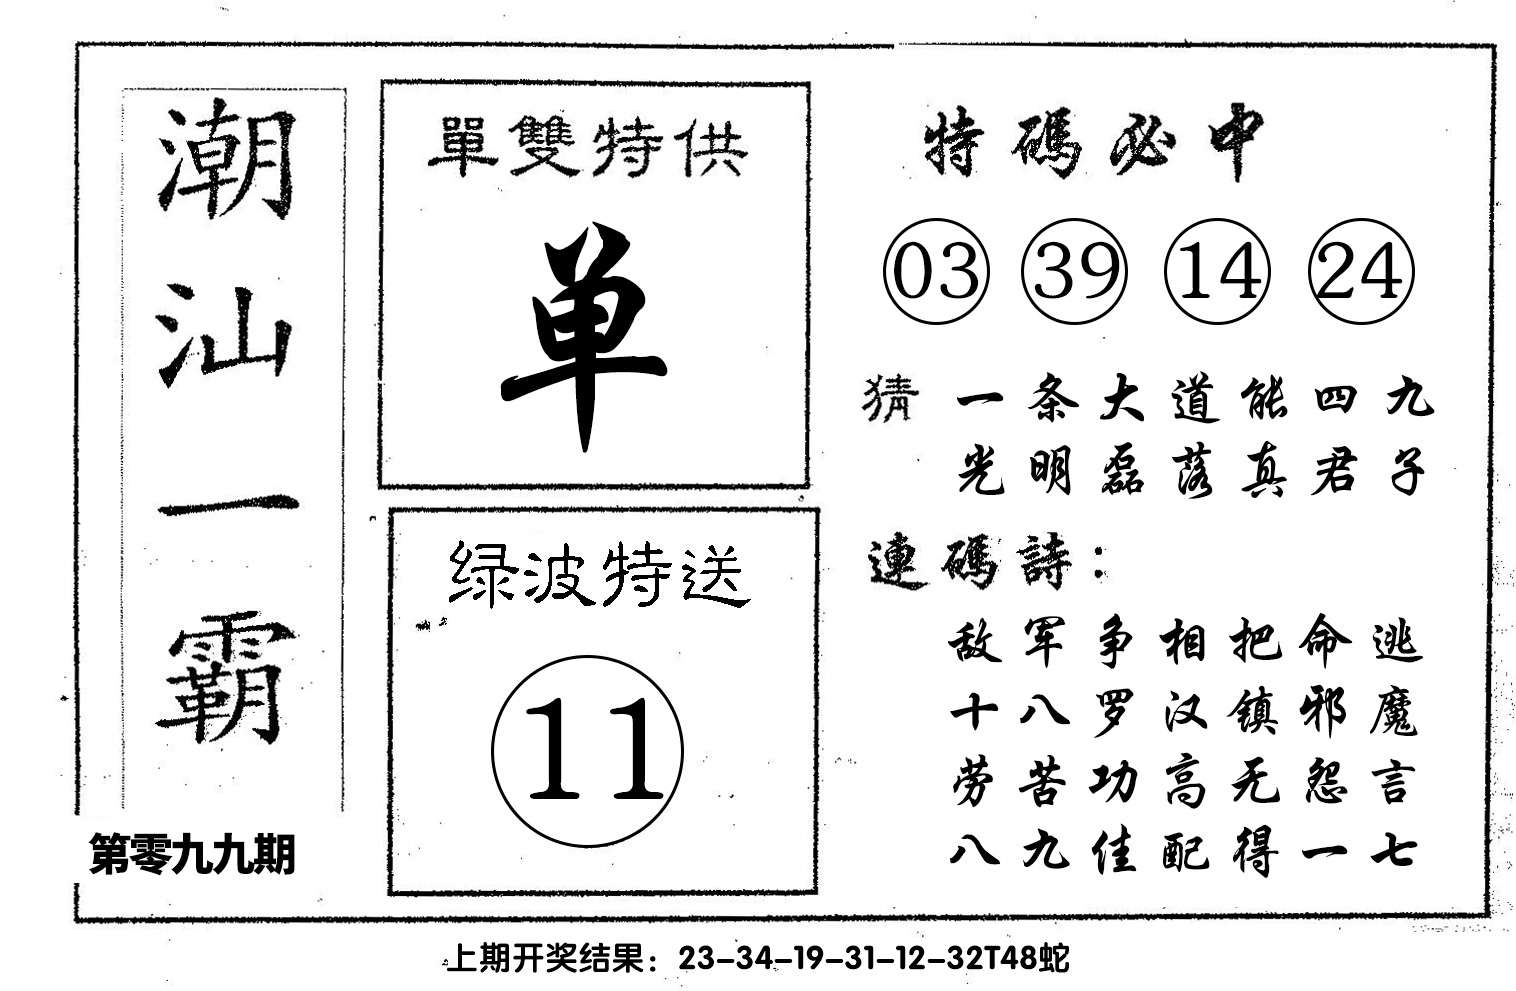 潮汕一霸
第零九九期
單雙特供
单
绿波特送
11
特碼必中
03 39 14 24
猜 一条大道能四九
光明磊落真君子
連碼詩：
敌军争相把命逃
十八罗汉镇邪魔
劳苦功高无怨言
八九佳配得一七
上期开奖结果：23-34-19-31-12-32T48蛇